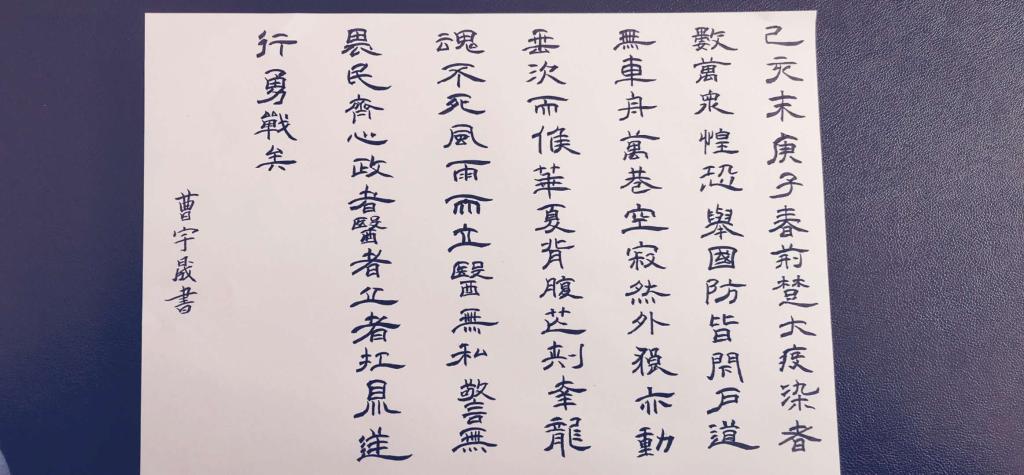 己亥末庚子春荊楚大疫染者
數萬衆惶恐舉國防皆閉戶道
無車舟萬巷空寂然外亦動
垂次而候華夏背腹芒刺幸龍
魂不死風雨而立醫無私警無
畏民齊心政者醫者立者扛鼎逆
行勇戰矣
曹宇晟書